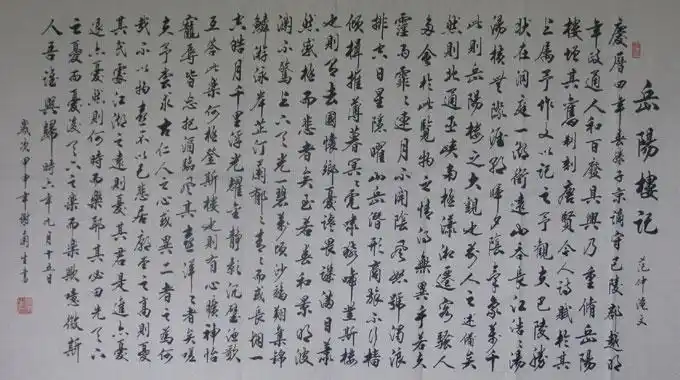 岳陽樓記
范仲淹文
慶曆四年春滕子京謫守巴陵郡越明
年政通人和百廢具興乃重脩岳陽
樓增其舊制刻唐賢今人詩賦於其
上屬予作文以記之予觀夫巴陵勝
狀在洞庭一湖銜遠山吞長江浩浩湯
湯橫無際涯朝暉夕陰氣象萬千
此則岳陽樓之大觀也前人之述備矣
然則北通巫峽南極瀟湘遷客騷人
多會於此覽物之情得無異乎若夫
霪雨霏霏連月不開陰風怒號濁浪
排空日星隱曜山岳潛形商旅不行檣
傾楫摧薄暮冥冥虎嘯猿啼登斯樓
也則有去國懷鄉憂讒畏譏滿目蕭
然感極而悲者矣至若春和景明波
瀾不驚上下天光一碧萬頃沙鷗翔集錦
鱗游泳岸芷汀蘭郁郁青青而或長煙一
空皓月千里浮光耀金靜影沉璧漁歌
互答此樂何極登斯樓也則有心曠神怡
寵辱皆忘把酒臨風其喜洋洋者矣嗟
夫予嘗求古仁人之心或異二者之為何
哉不以物喜不以己悲居廟堂之高則憂
其民處江湖之遠則憂其君是進亦憂
退亦憂然則何時而樂耶其必曰先天下
之憂而憂後天下之樂而樂歟噫微斯
人吾誰與歸時六年九月十五日
歲次甲申年謝南生書